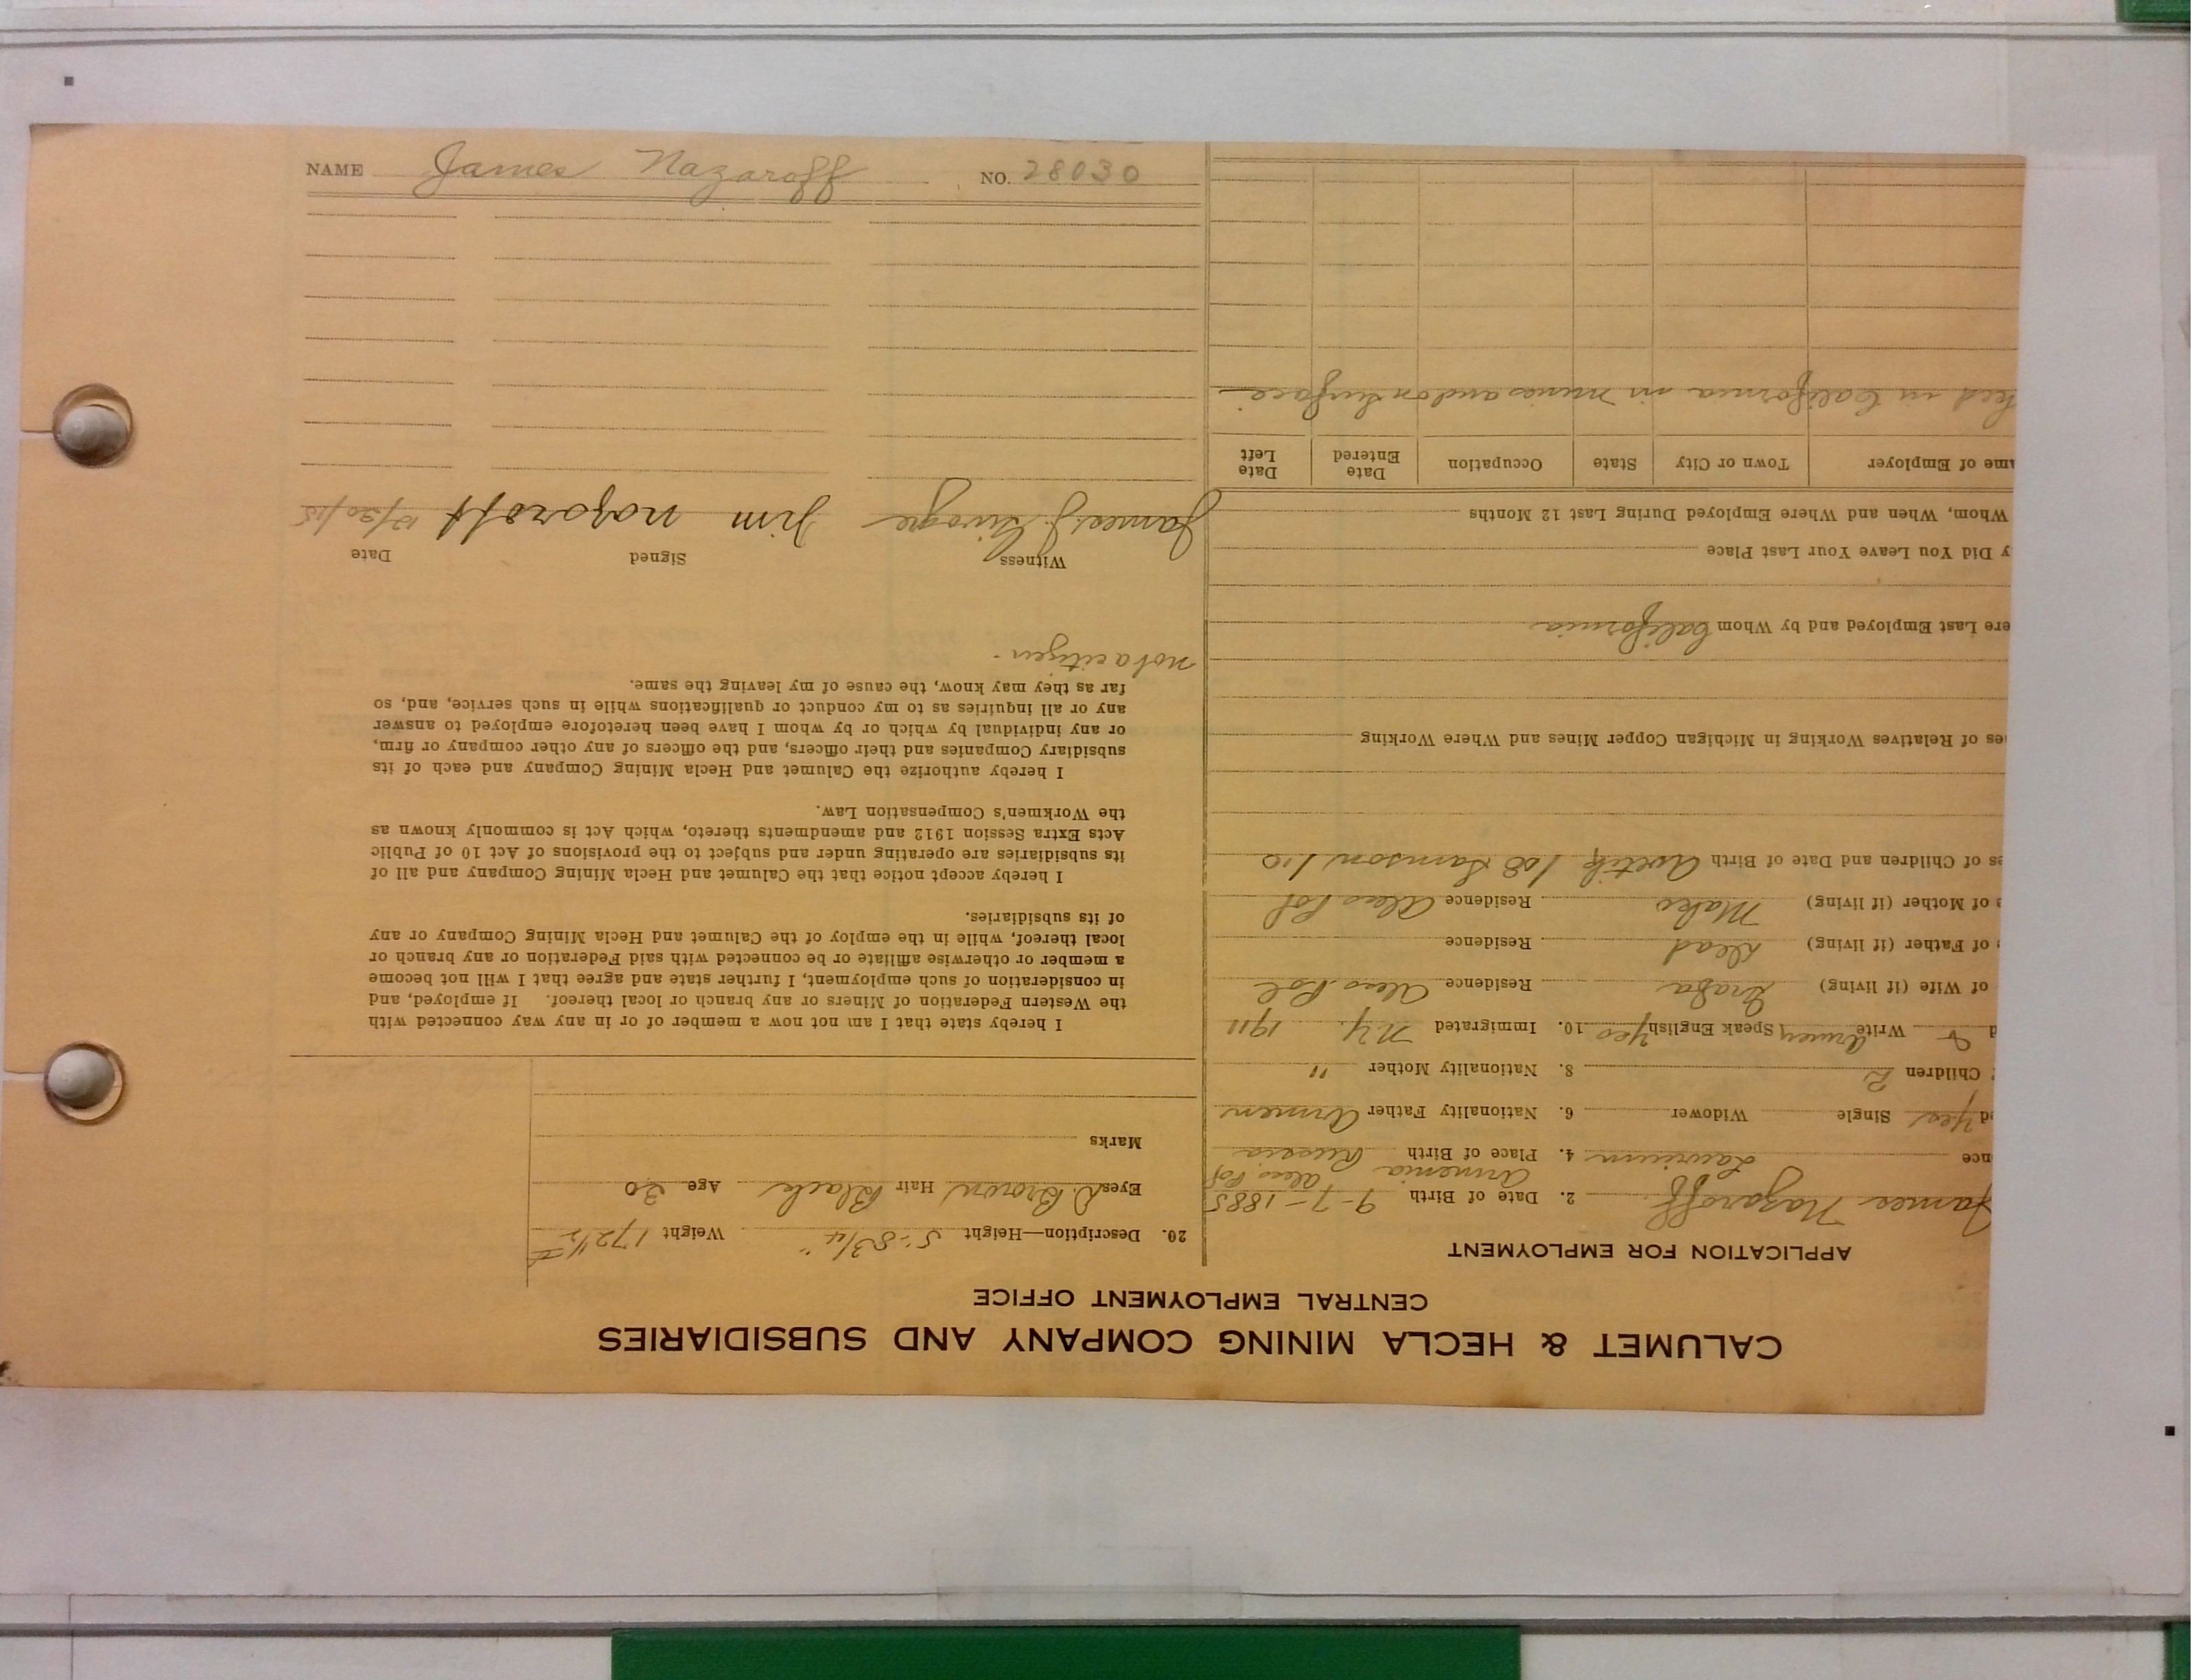 NAME James Nazaroff NO. 28030
CALUMET & HECLA MINING COMPANY AND SUBSIDIARIES
CENTRAL EMPLOYMENT OFFICE
APPLICATION FOR EMPLOYMENT
James Nazaroff 2. Date of Birth 9-7-1885
Armenia Alex. Pol
nce Laurium 4. Place of Birth Russia
ed Yes Single Widower 6. Nationality Father Armen
Children 2 8. Nationality Mother "
d & Write Armen Speak English Yes 10. Immigrated N.Y. 1911
of Wife (if living) Residence Alex Pol
of Father (if living) Dead Residence
of Mother (if living) Mako Residence Alex Pol
es of Children and Date of Birth Avetik 1908 Samson 1910
es of Relatives Working in Michigan Copper Mines and Where Working
ere Last Employed and by Whom California
y Did You Leave Your Last Place
Whom, When and Where Employed During Last 12 Months
ame of Employer Town or City State Occupation Date Entered Date Left
ked in California in Mines and on Surface.
20. Description—Height 5'-8 3/4" Weight 172 1/2 #
Eyes D. Brown Hair Black Age 30
Marks
I hereby state that I am not now a member of or in any way connected with
the Western Federation of Miners or any branch or local thereof. If employed, and
in consideration of such employment, I further state and agree that I will not become
a member or otherwise affiliate or be connected with said Federation or any branch or
local thereof, while in the employ of the Calumet and Hecla Mining Company or any
of its subsidiaries.
I hereby accept notice that the Calumet and Hecla Mining Company and all of
its subsidiaries are operating under and subject to the provisions of Act 10 of Public
Acts Extra Session 1912 and amendments thereto, which Act is commonly known as
the Workmen's Compensation Law.
I hereby authorize the Calumet and Hecla Mining Company and each of its
subsidiary Companies and their officers, and the officers of any other company or firm,
or any individual by which or by whom I have been heretofore employed to answer
any or all inquiries as to my conduct or qualifications while in such service, and, so
far as they may know, the cause of my leaving the same.
Not a citizen.
Witness Signed Date
James J. Jim nazoroff 12/20/15